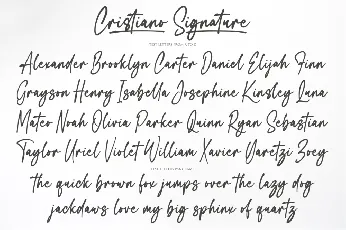 Cristiano Signature
Alexander Brooklyn Carter Daniel Elijah Finn
Grayson Henry Isabella Josephine Kinsley Luna
Mateo Noah Olivia Parker Quinn Ryan Sebastian
Taylor Uriel Violet William Xavier Yaretzi Zoey
the quick brown fox jumps over the lazy dog
jackdaws love my big sphinx of quartz